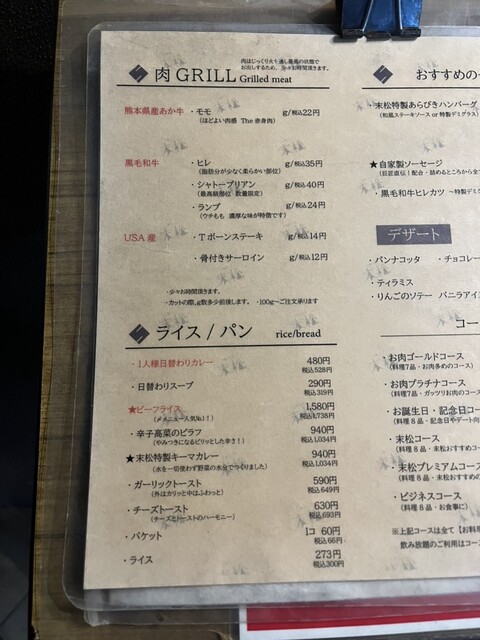 肉 GRILL Grilled meat
肉はじっくり火を通し最高の状態で
お出しするため、少々お時間頂きます。
熊本県産あか牛 ・モモ g/税込22円
(ほどよい肉感 The 赤身肉)
黒毛和牛 ・ヒレ g/税込35円
(脂肪分が少なく柔らかい部位)
・シャトーブリアン g/税込40円
(最高級部位 数量限定)
・ランプ g/税込24円
(ウチもも 濃厚な味が特徴です)
USA産 ・Tボーンステーキ g/税込14円
・骨付きサーロイン g/税込12円
・少々お時間頂きます。
・カットの際、g数多少前後します。 ・100g〜ご注文承ります
ライス / パン rice/bread
・1人様日替わりカレー 480円
税込528円
・日替わりスープ 290円
税込319円
★ビーフライス 1,580円
(メニュー人気No.1!) 税込1,738円
・辛子高菜のピラフ 940円
(やみつきになるピリッとした辛さ!) 税込1,034円
★末松特製キーマカレー 940円
(水を一切使わず野菜の水分でつくりました) 税込1,034円
・ガーリックトースト 590円
(外はカリッと中はふわっと) 税込649円
・チーズトースト 630円
(チーズとトーストのハーモニー) 税込693円
・バケット 1コ 60円
税込66円
・ライス 273円
税込300円
おすすめの
・末松特製あらびきハンバーグ
(和風ステーキソース or 特製デミグラス)
★自家製ソーセージ
・黒毛和牛ヒレカツ 〜特製デミ
デザート
・パンナコッタ ・チョコレー
・ティラミス
・りんごのソテー バニラアイ
コー
・お肉ゴールドコース
(料理7品・お肉多めのコース)
・お肉プラチナコース
(料理7品・ガッツリお肉のコース)
・お誕生日・記念日コー
(料理8品・記念日やデート向
・末松コース
(料理8品・末松おすすめの
・末松プレミアムコース
(料理8品・末松おすすめ
・ビジネスコース
(料理8品・お食事に)
※上記コースは全て【お料
飲み放題のご利用はコース